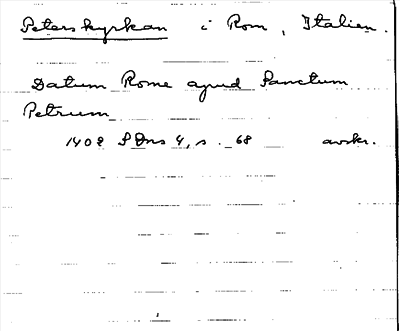 Peterskyrkan i Rom, Italien.
Datum Rome apud Sanctum
Petrum
1402 SDns 4, s. 68 avskr.